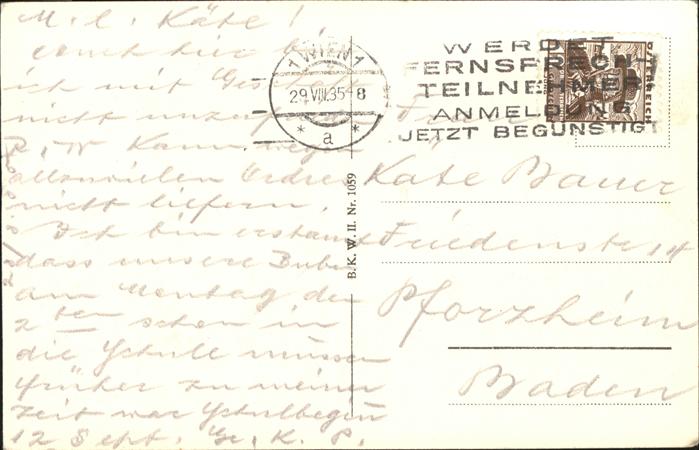 M. l. Käte!
auch hier bin
ich mit
nicht
P. W. kann wegen
allzuvielen Ordres
nicht liefern.
Ich bin erstaunt
dass unsere Bube
am Montag den
2ten schon in
die Schule müssen
früher zu meiner
Zeit war Schulbeginn
12 Sept. K. P.
1 WIEN 1
29.VIII.35-8
* a *
WERDET
FERNSPRECH-
TEILNEHMER
ANMELDUNG
JETZT BEGÜNSTIGT
ÖSTERREICH
B. K. W. II. Nr. 1059
Kate Bauer
Friedenstr.
Pforzheim
Baden